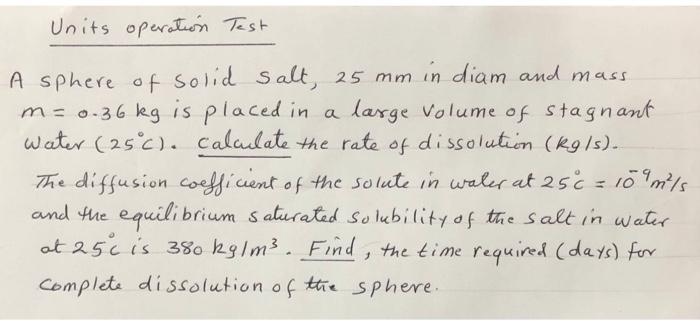 Units operation Test
A sphere of solid salt, 25 mm in diam and mass
m = 0.36 kg is placed in a large volume of stagnant
water (25°C). calculate the rate of dissolution (kg/s).
The diffusion coefficient of the solute in water at 25°C = 10⁻⁹ m²/s
and the equilibrium saturated solubility of the salt in water
at 25°C is 380 kg/m³. Find, the time required (days) for
complete dissolution of the sphere.